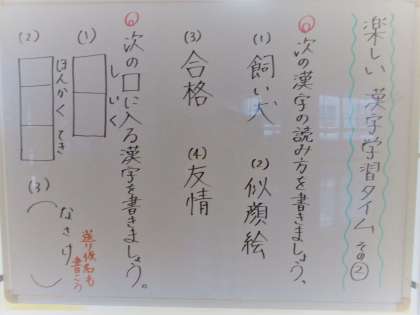 楽しい 漢字学習タイム その②
◎次の漢字の読み方を書きましょう。
(1) 飼い犬 (2) 似顔絵
(3) 合格 (4) 友情
◎次の□に入る漢字を書きましょう。
(1) しいく
(2) ほんかくてき
(3) ( なさけ )
送り仮名も書こう